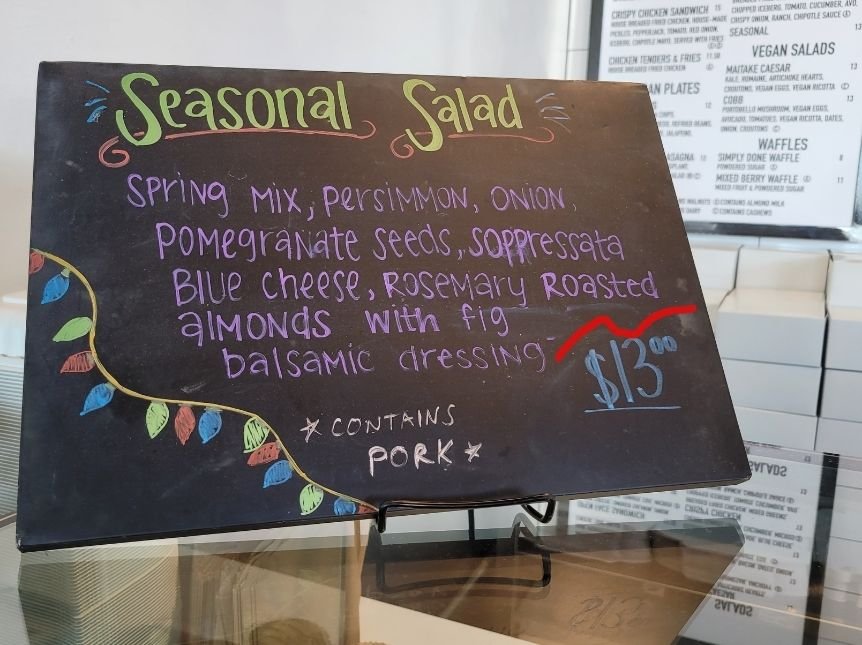 Seasonal Salad
Spring Mix, Persimmon, Onion,
Pomegranate seeds, Soppressata
Blue cheese, Rosemary Roasted
almonds with fig
balsamic dressing
$13.00
*CONTAINS
PORK*
CRISPY CHICKEN SANDWICH 15
HOUSE BREADED FRIED CHICKEN, HOUSE-MADE
PICKLES, PEPPERJACK, TOMATO, RED ONION,
ICEBERG, CHIPOTLE MAYO, SERVED WITH FRIES
CHICKEN TENDERS & FRIES 11.50
HOUSE BREADED FRIED CHICKEN
AN PLATES
12
CHIPS,
REFRIED BEANS,
JALAPENO,
ASAGNA 13
CHOPPED ICEBERG, TOMATO, CUCUMBER, AVO,
CRISPY ONION, RANCH, CHIPOTLE SAUCE
SEASONAL
VEGAN SALADS
MAITAKE CAESAR 13
KALE, ROMAINE, ARTICHOKE HEARTS,
CROUTONS, VEGAN EGGS, VEGAN RICOTTA
COBB 13
PORTOBELLO MUSHROOM, VEGAN EGGS,
AVOCADO, TOMATOES, VEGAN RICOTTA, DATES,
ONION, CROUTONS
WAFFLES
SIMPLY DONE WAFFLE 8
POWDERED SUGAR
MIXED BERRY WAFFLE 11
MIXED FRUIT & POWDERED SUGAR
WALNUTS CONTAINS ALMOND MILK
DAIRY CONTAINS CASHEWS